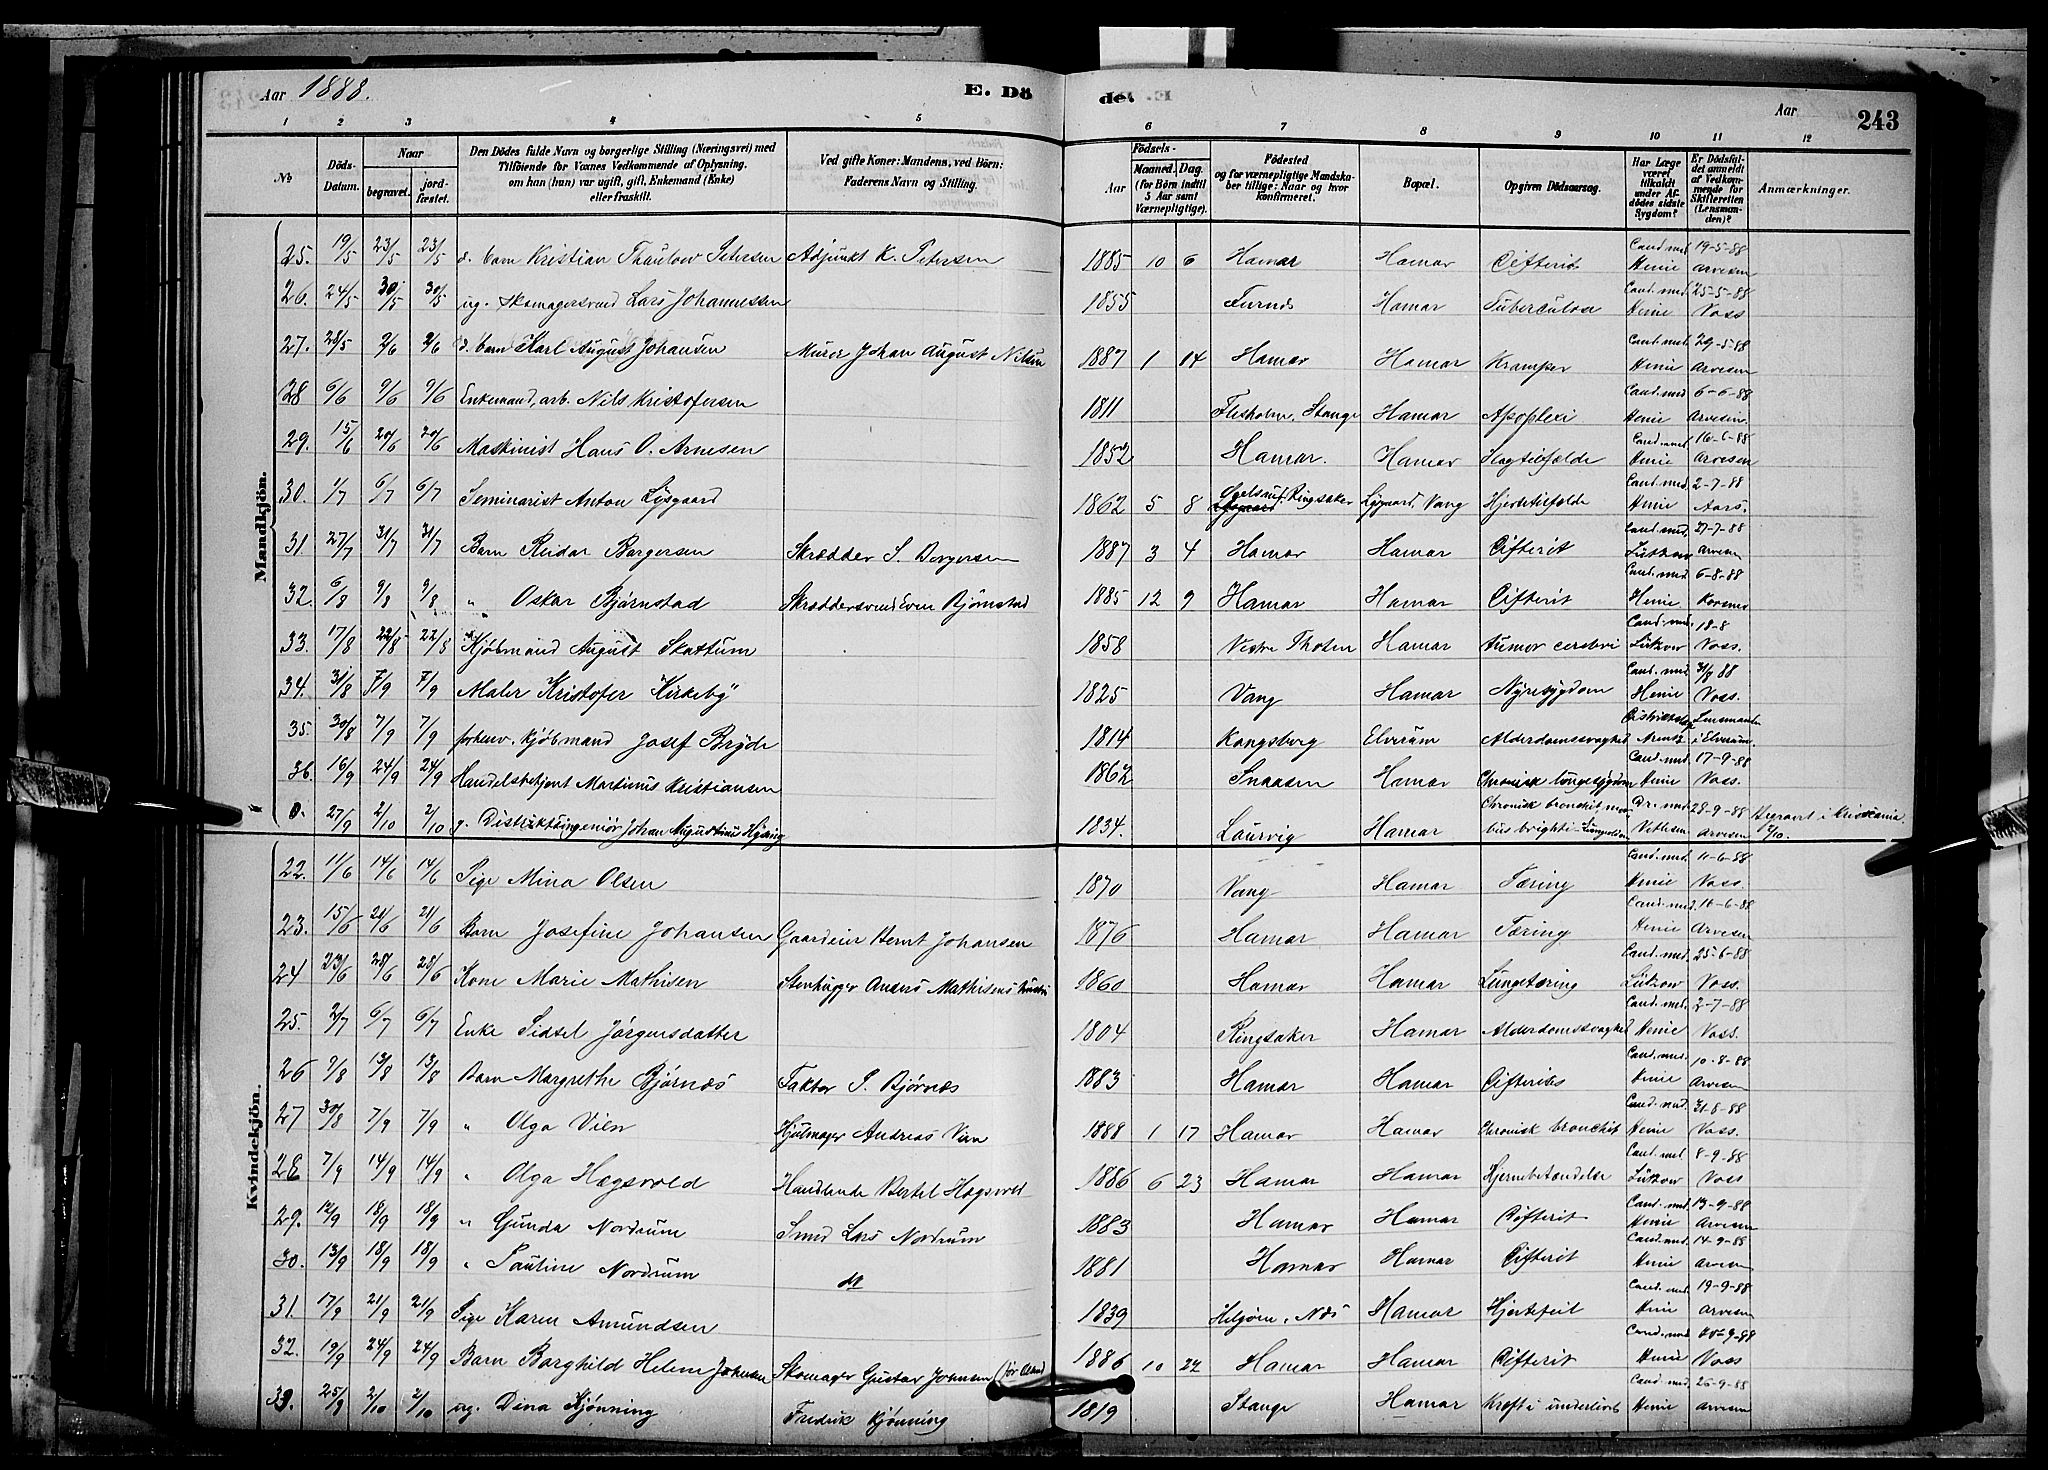 Aar 1888. E. Dö de. Aar 243
1 2 3 4 5 6 7 8 9 10 11 12
No. Döds-Datum. Naar begravet. jordfæstet. Den Dödes fulde Navn og borgerlige Stilling (Næringsvei) med Tilföiende for Voxnes Vedkommende af Oplysning, om han (hun) var ugift, gift, Enkemand (Enke) eller fraskilt. Ved gifte Koner: Mandens, ved Börn: Faderens Navn og Stilling. Födsels- Aar Maaned. Dag. (for Börn indtil 5 Aar samt Værnepligtige). Födested og for værnepligtige Mandskaber tillige: Naar og hvor konfirmeret. Bopæl. Opgiven Dödsaarsag. Har Læge været tilkaldt under Afdödes sidste Sygdom? Er Dödsfaldet anmeldt af Vedkommende for Skifteretten (Lensmanden)? Anmærkninger.
Mandkjön.
25. 19/5 23/5 23/5 d. barn Kristian Thaulow Petersen Adjunkt K. Petersen 1885 10 6 Hamar Hamar Difterit Cand. med. Henie 19-5-88 Arvesen
26. 24/5 30/5 30/5 ug. Skomagersvend Lars Johannessen 1855 Furnes Hamar Tuberculose Cand. med. Henie 25-5-88 Voss
27. 28/5 2/6 2/6 d. barn Karl August Johansen Murer Johan August Nilsen 1887 1 14 Hamar Hamar Kramper Cand. med. Henie 29-5-88 Arvesen
28 6/6 9/6 9/6 Enkemand, arb. Nils Kristofersen 1811 Stange Hamar Apoplexi Cand. med. Henie 6-6-88 Arvesen.
29. 15/6 20/6 20/6 Maskinist Hans O. Arnesen 1852 Hamar. Hamar Slagtilfælde Cand. med. Henie 16-6-88 Arvesen
30. 1/7 6/7 6/7 Seminarist Anton Lysgaard 1862 5 8 Ringsaker Lysgaard, Vang Hjertetilfælde Cand. med. Henie 2-7-88 Aars.
31 27/7 31/7 31/7 Barn Reidar Borgersen Skrædder S. Borgersen 1887 3 4 Hamar Hamar Difterit Cand. med. Lützow 27-7-88 Arvesen
32. 6/8 9/8 9/8 " Oskar Bjørnstad Skræddersvend Even Bjørnstad 1885 12 9 Hamar Hamar Difterit Cand. med. Henie 6-8-88
33. 17/8 22/8 22/8 Kjøbmand August Skattum 1858 Vestre Thoten Hamar tumor cerebri Cand. med. Lützow 18-8 Voss.
34. 31/8 7/9 7/9 Maler Kristofer "Kirkeby" 1825 Vang Hamar Nyresygdom Cand. med. Henie 31/8 88 Voss.
35. 30/8 7/9 7/9 forhenv. kjøbmand Josef Bryde 1814 Kongsberg Elverum Alderdomssvaghed Distriktslæge Arentz Lensmanden i Elverum.
36. 16/9 24/9 24/9 Handelsbetjent Martinus Kristiansen 1862 Snaasen Hamar Chronisk lungesygdom Cand. med. Henie 17-9-88 Voss.
0. 27/9 2/10 2/10 g. Distriktsingeniør Johan Augustinus 1834. Laurvig Hamar Chronisk bronchit morbus brighti Dr. med. Vetlesen 28-9-88 Arvesen Begravet i Kristiania 2/10.
Kvindekjön.
22. 11/6 14/6 14/6 Pige Mina Olsen 1870 Vang Hamar Tæring Cand. med. Henie 11-6-88 Voss.
23. 15/6 21/6 21/6 Barn Josefine Johansen Gaardeier Bernt Johansen 1876 Hamar Hamar Tæring Cand. med. Henie 16-6-88 Arvesen
24 23/6 28/6 28/6 Kone Marie Mathisen Stenhugger Anders Mathisens hustru 1860 Hamar Hamar Lungetæring Cand. med. Lützow 25-6-88 Voss.
25. 2/7 6/7 6/7 Enke Sidsel Jørgensdatter 1804 Ringsaker Hamar Alderdomssvaghed Cand. med. Henie 2-7-88 Voss.
26 9/8 13/8 13/8 Barn Margrethe Bjørnæs Faktor P. Bjørnæs 1883 Hamar Hamar Difteritis Cand. med. Henie 10-8-88 Arvesen
27 30/8 7/9 7/9 " Olga Vien Hjulmager Andreas Vien 1888 1 17 Hamar Hamar Chronisk bronchit Cand. med. Henie 31-8-88 Voss.
28 7/9 14/9 14/9 " Olga Hægsvold Handlende Bertel Hægsvold 1886 6 23 Hamar Hamar Hjernebetændelse Cand. med. Lützow 8-9-88 Voss
29. 12/9 18/9 18/9 " Gunda Nordrum Smed Lars Nordrum 1883 Hamar Hamar Difterit Cand. med. Henie 13-9-88 Arvesen
30. 13/9 18/9 18/9 " Pauline Nordrum do 1881 Hamar Hamar Difterit Cand. med. Henie 14-9-88 Arvesen
31. 17/9 21/9 21/9 Pige Karen Amundsen 1839 Næs Hamar Hjertefeil Cand. med. Henie 19-9-88 Arvesen
32. 19/9 24/9 24/9 Barn Borghild Helene Johnsen Skomager Gustav Johnsen 1886 10 27 Hamar Hamar Difterit Cand. med. Henie 20-9-88 Voss
33 25/9 2/10 2/10 ug. Dina Kjønning Fredrik Kjønning 1819 Stange Hamar Kræft i underlivet Cand. med. Henie 26-9-88 Arvesen